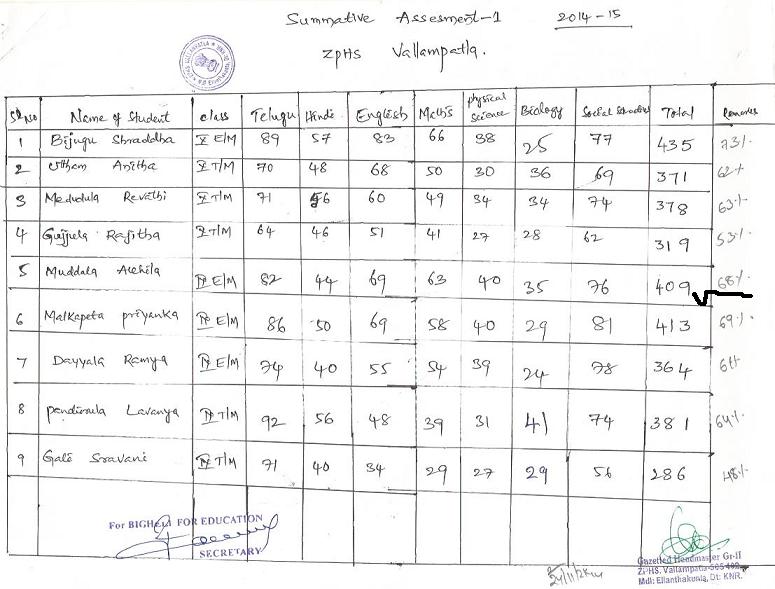 Summative Assesment-1 2014-15
ZPHS Vallampatla.
Sl No Name of Student class Telugu Hindi English Maths physical science Biology Social Studies Total Remarks
1 Bijugu Shraddha X E/M 89 57 83 66 38 25 77 435 73%
2 Anitha X T/M 70 48 68 50 30 36 69 371 62%
3 Medudula Revathi X T/M 71 56 60 49 34 34 74 378 63%
4 Gujjula Rajitha X T/M 64 46 51 41 27 28 62 319 53%
5 Muddala Akhila IX E/M 82 44 69 63 40 35 76 409 68%
6 Malkapeta priyanka IX E/M 86 50 69 58 40 29 81 413 69%
7 Dayyala Ramya IX E/M 74 40 55 54 39 24 78 364
8 Lavanya IX T/M 92 56 48 39 31 41 74 381 64%
9 Gale Sravani IX T/M 71 40 34 29 27 29 56 286 48%
For BIGHELP FOR EDUCATION
SECRETARY
Gazetted Headmaster Gr-II
ZPHS, Vallampatla-505 402
Mdl: Ellanthakunta, Dt: KNR.